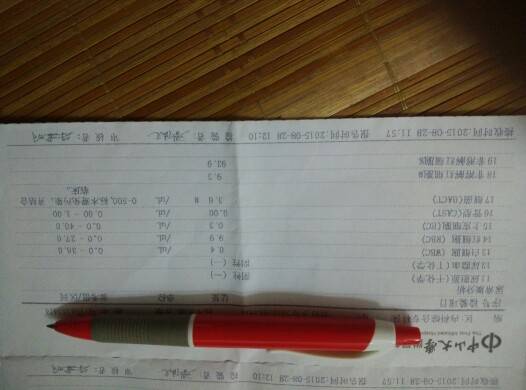 12:10 检验者: 审核者:
中山大学附
The First Affiliated Hospital
区: 内科综合专科
序号 检验项目 结果 单位 参考值/区间
尿液分析
11 尿胆原(干化学) 阴性 (—)
(干化学) 阴性 (—)
13 白细胞 (WBC) 8.4 /uL 0.0 - 36.0
14 红细胞 (RBC) 9.9 /uL 0.0 - 27.0
15 上皮细胞(EC) 0.3 /uL 0.0 - 40.0
16 管型(CAST) 0.00 /uL 0.00 - 1.00
17 细菌(BACT) 3.6 /uL 0-500, 标本避免污染, 请结合
临床。
18 非溶解红细胞# 9.3
19 非溶解红细胞% 93.9
接收时间:2015-08-28 11:57 报告时间:2015-08-28 12:10 检验者: 审核者: